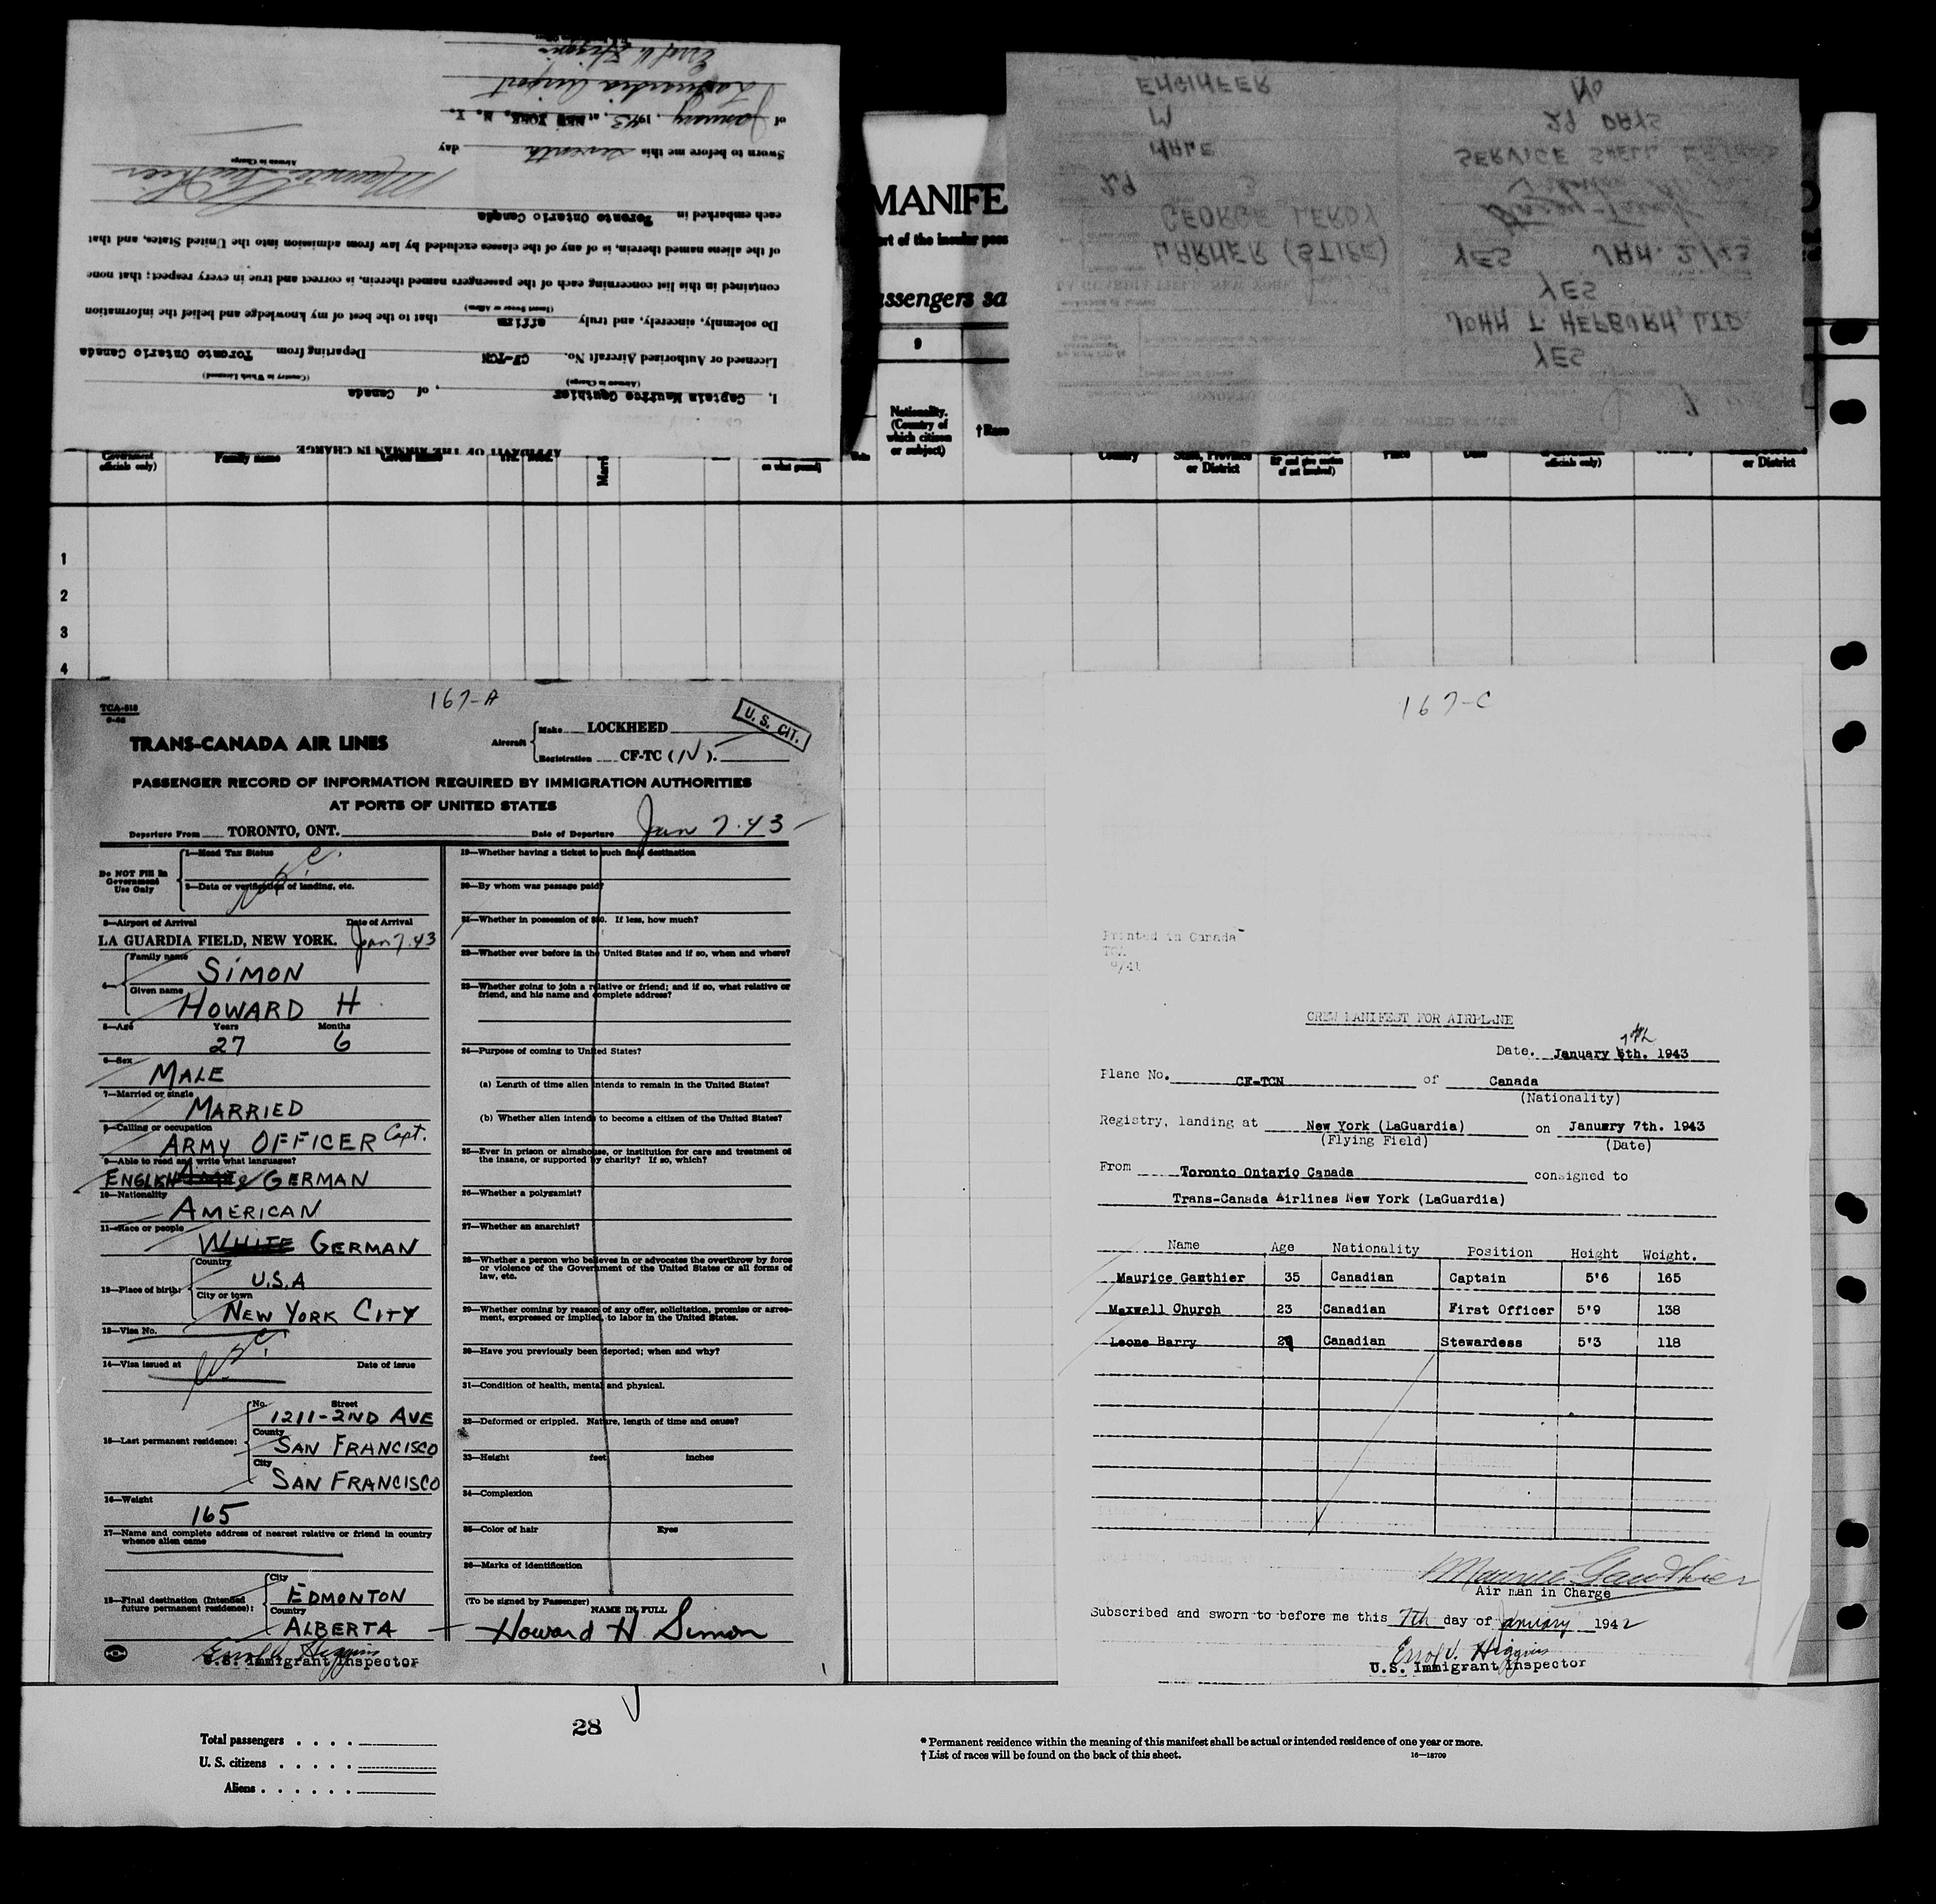 AFFIDAVIT OF THE AIRMAN IN CHARGE
I, Captain Maurice Gauthier, of Canada
(Airman in Charge) (Country in Which Licensed)
Licensed or Authorized Aircraft No. CF-TCN Departing from Toronto Ontario Canada
Do solemnly, sincerely, and truly affirm that to the best of my knowledge and belief the information
(Insert Swear or Affirm)
contained in this list concerning each of the passengers named therein, is correct and true in every respect; that none
of the aliens named therein, is of any of the classes excluded by law from admission into the United States, and that
each embarked in Toronto Ontario Canada
Maurice Gauthier
Airman in Charge
Sworn to before me this seventh day
of January, 1943, at NEW YORK, N. Y.
LaGuardia Airport
Errol V. Higgins
YES
JOHN T. HEPBURN, LTD.
YES
LARNER (STIPE) YES JAN. 2/43
GEORGE LEROY
29 3
MALE SERVICE SHELL
M 29 DAYS
ENGINEER No
MANIFE
rt of the insular poss
ssengers sa
9
Nationality.
(Country of
which citizen
or subject)
†Race
Government
officials only)
Family name
Given name
on what ground)
Country
State, Province
or District
Place
Date
officials only)
or District
1
2
3
4
167-A
TCA-818
TRANS-CANADA AIR LINES
Aircraft
Make LOCKHEED
Registration CF-TC (N).
U. S. CIT.
PASSENGER RECORD OF INFORMATION REQUIRED BY IMMIGRATION AUTHORITIES
AT PORTS OF UNITED STATES
Departure From TORONTO, ONT. Date of Departure Jan 7.43
Do NOT Fill In
Government
Use Only
1—Head Tax Status
2—Data or verification of landing, etc.
3—Airport of Arrival Date of Arrival
LA GUARDIA FIELD, NEW YORK. Jan 7.43
4— Family name SIMON
Given name HOWARD H
5—Age Years Months
27 6
6—Sex
MALE
7—Married or single
MARRIED
8—Calling or occupation
ARMY OFFICER Capt.
9—Able to read and write what languages?
ENGLISH & GERMAN
10—Nationality
AMERICAN
11—Race or people
WHITE GERMAN
12—Place of birth:
Country
U.S.A
City or town
NEW YORK CITY
13—Visa No.
14—Visa issued at Date of issue
15—Last permanent residence:
No. Street
1211-2ND AVE
County
SAN FRANCISCO
City
SAN FRANCISCO
16—Weight
165
17—Name and complete address of nearest relative or friend in country
whence alien came
18—Final destination (Intended
future permanent residence):
City
EDMONTON
Country
ALBERTA
Errol V. Higgins
U.S. Immigrant Inspector
19—Whether having a ticket to such final destination
20—By whom was passage paid?
21—Whether in possession of $50. If less, how much?
22—Whether ever before in the United States and if so, when and where?
23—Whether going to join a relative or friend; and if so, what relative or
friend, and his name and complete address?
24—Purpose of coming to United States?
(a) Length of time alien intends to remain in the United States?
(b) Whether alien intends to become a citizen of the United States?
25—Ever in prison or almshouse, or institution for care and treatment of
the insane, or supported by charity? If so, which?
26—Whether a polygamist?
27—Whether an anarchist?
28—Whether a person who believes in or advocates the overthrow by force
or violence of the Government of the United States or all forms of
law, etc.
29—Whether coming by reason of any offer, solicitation, promise or agree-
ment, expressed or implied, to labor in the United States.
30—Have you previously been deported; when and why?
31—Condition of health, mental and physical.
32—Deformed or crippled. Nature, length of time and cause?
33—Height feet inches
34—Complexion
35—Color of hair Eyes
36—Marks of identification
(To be signed by Passenger)
NAME IN FULL
Howard H Simon
167-C
Printed in Canada
TCA
9/41
CREW MANIFEST FOR AIRPLANE
7th
Date. January 6th. 1943
Plane No. CF-TCN of Canada
(Nationality)
Registry, landing at New York (LaGuardia) on January 7th. 1943
(Flying Field) (Date)
From Toronto Ontario Canada consigned to
Trans-Canada Airlines New York (LaGuardia)
Name Age Nationality Position Height Weight.
Maurice Gauthier 35 Canadian Captain 5'6 165
Maxwell Church 23 Canadian First Officer 5'9 138
Leone Barry Canadian Stewardess 5'3 118
Maurice Gauthier
Air man in Charge
Subscribed and sworn to before me this 7th day of January 1942
Errol V. Higgins
U.S. Immigrant Inspector
28
Total passengers . . . .
U. S. citizens . . . . .
Aliens . . . . . .
* Permanent residence within the meaning of this manifest shall be actual or intended residence of one year or more.
† List of races will be found on the back of this sheet.
16—18709